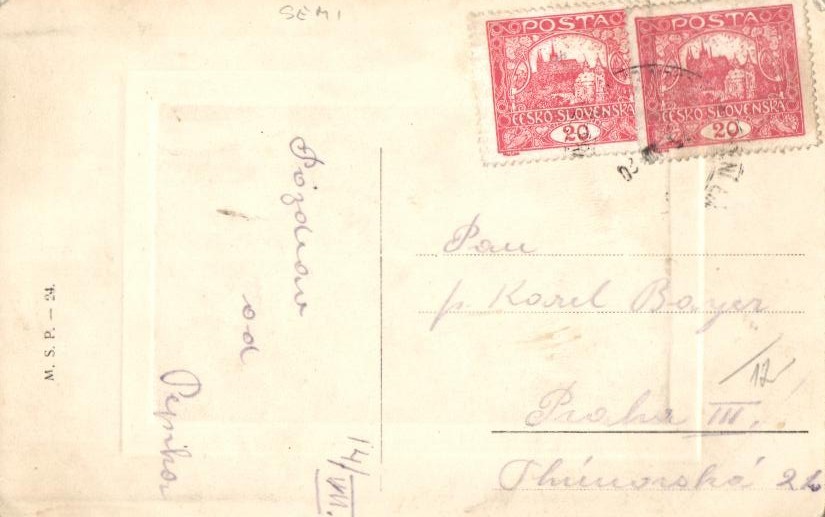 SEMI
POSTA
ČESKO-SLOVENSKÁ
20
POSTA
ČESKO-SLOVENSKÁ
20
Pozdrav
od
Pepíka
14/VIII.
M. S. P. — 24.
Pan
p. Karel Bayer
/12
Praha III.